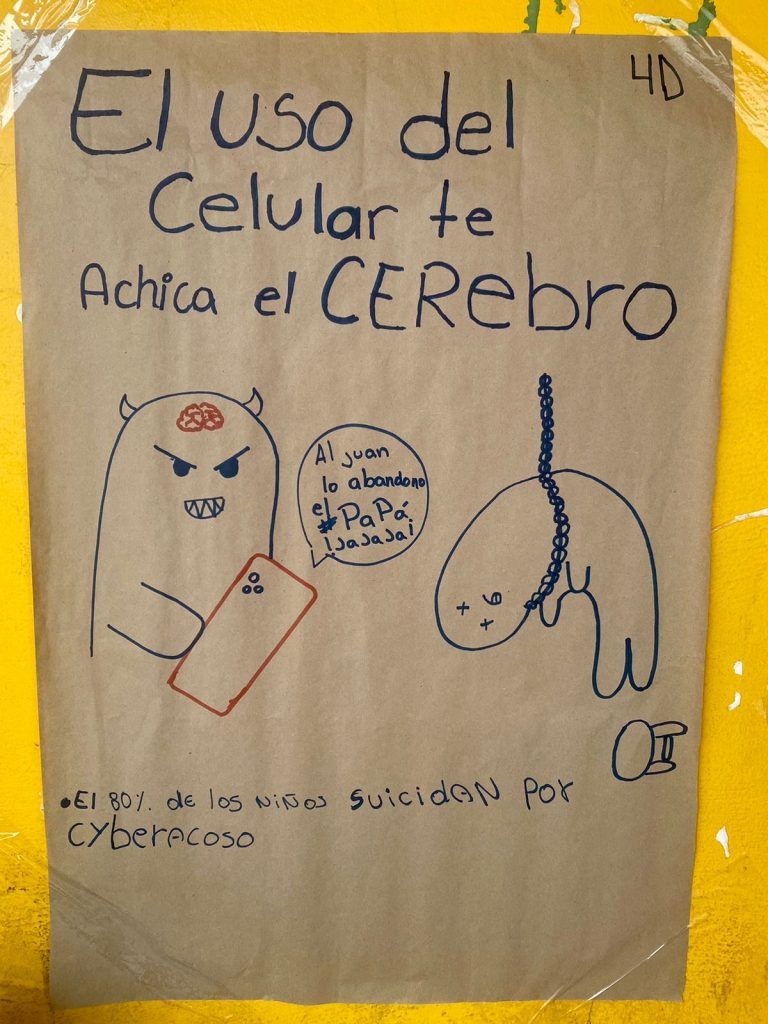 4D
El uso del
Celular te
Achica el CERebro
Al juan
lo abandono
el
#PaPá
¡!JaJaJa¡
•El 80% de los niños suicidan por
cyberacoso